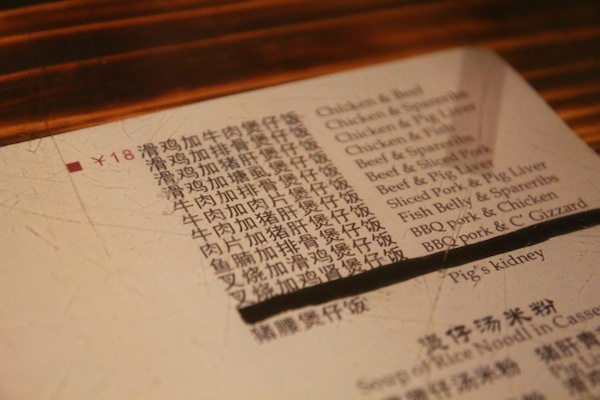 ¥18 滑鸡加牛肉煲仔饭 Chicken & Beef
滑鸡加排骨煲仔饭 Chicken & Spareribs
滑鸡加猪肝煲仔饭 Chicken & Pig Liver
滑鸡加塘虱煲仔饭 Chicken & Fish
牛肉加排骨煲仔饭 Beef & Spareribs
牛肉加肉片煲仔饭 Beef & Sliced Pork
牛肉加猪肝煲仔饭 Beef & Pig Liver
肉片加猪肝煲仔饭 Sliced Pork & Pig Liver
鱼腩加排骨煲仔饭 Fish Belly & Spareribs
叉烧加滑鸡煲仔饭 BBQ pork & Chicken
叉烧加鸡肾煲仔饭 BBQ pork & C' Gizzard
猪腰煲仔饭 Pig's kidney
煲仔汤米粉
Soup of Rice Noodl in Casse
煲仔汤米粉 猪肝